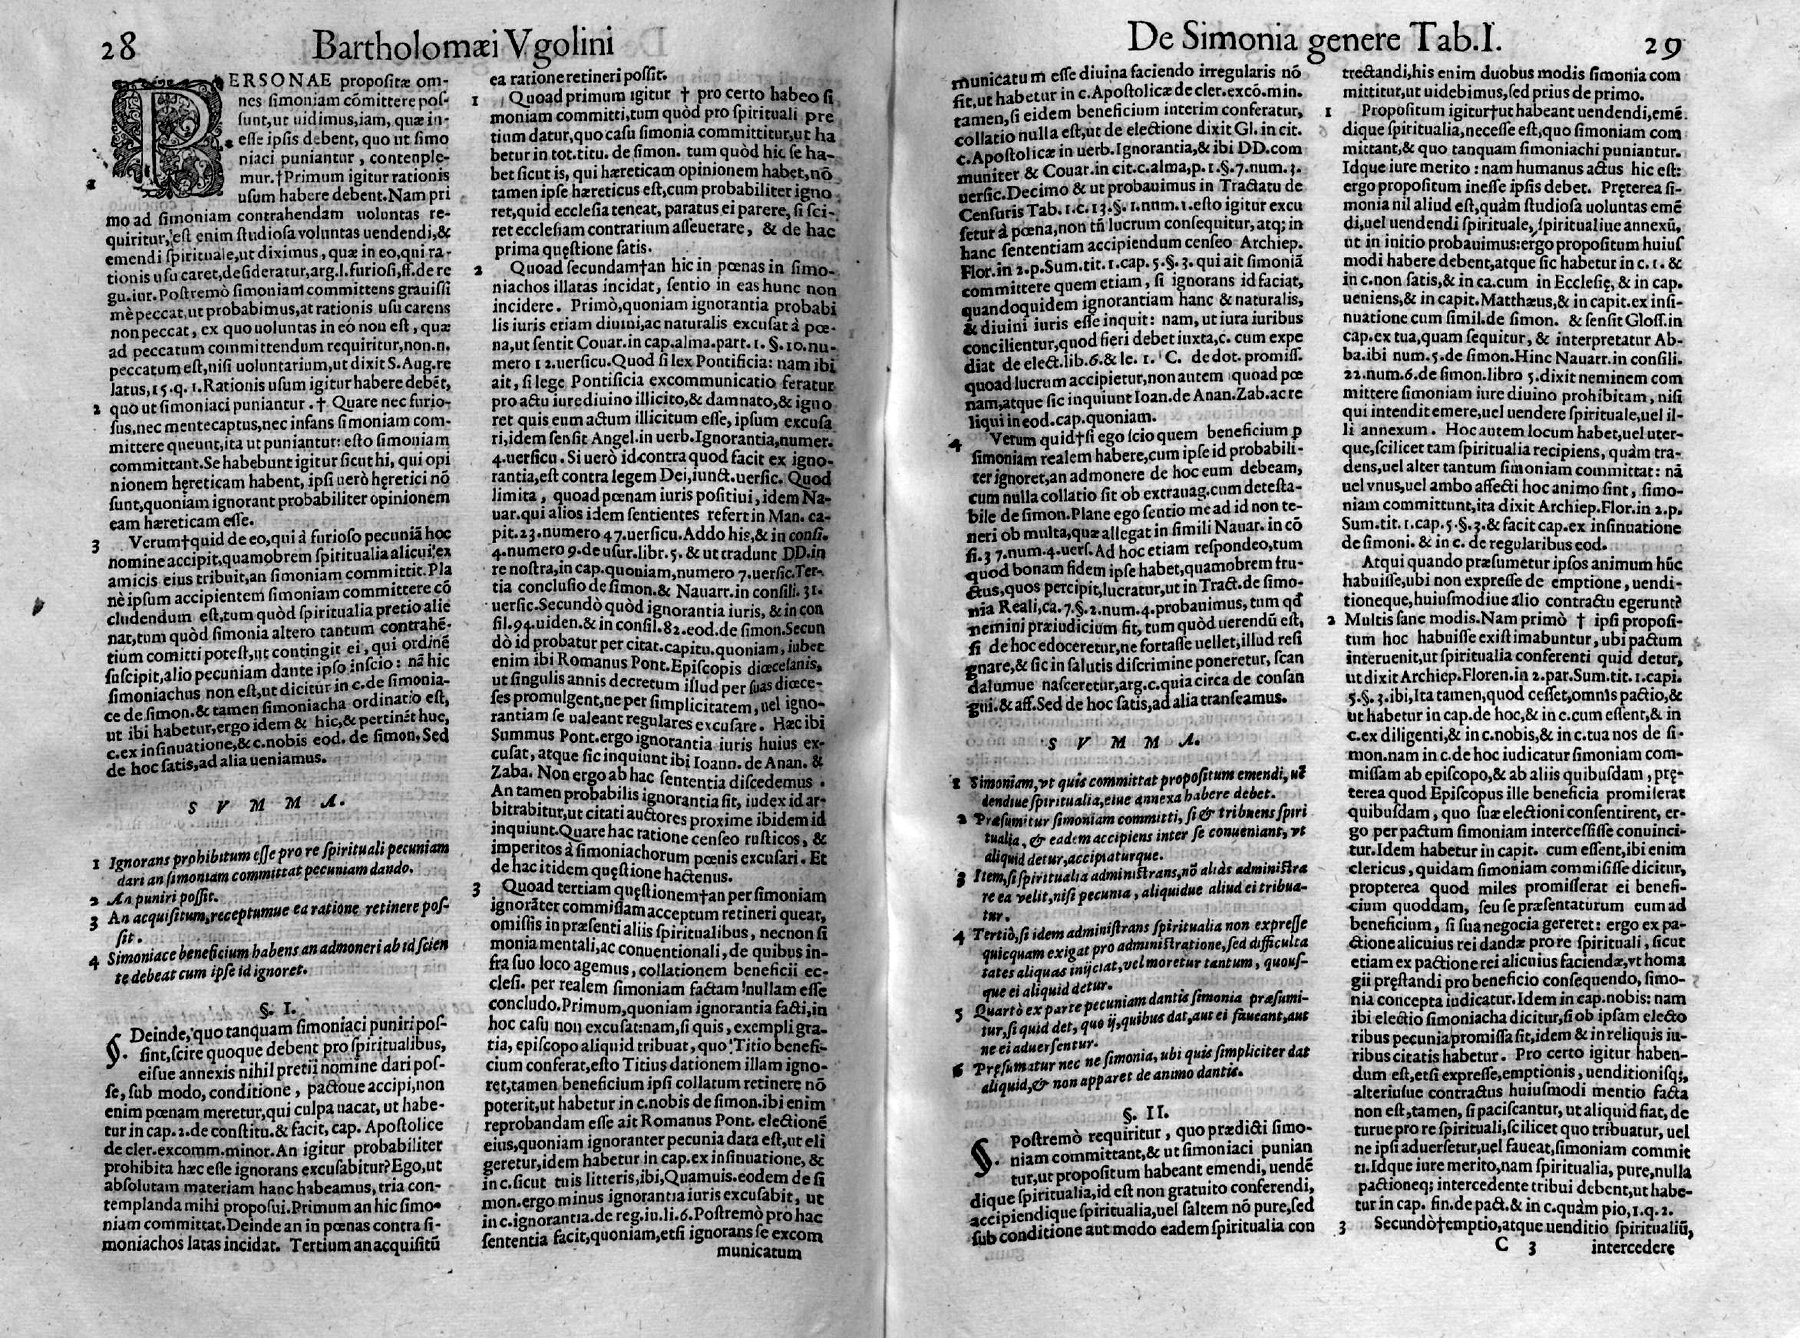 28 Bartholomæi Vgolini
PERSONAE propositæ om-
nes simoniam cōmittere pos-
sunt,ut uidimus,iam, quæ in-
esse ipsis debent, quo ut simo
niaci puniantur, contemple-
mur.†Primum igitur rationis
1 usum habere debent.Nam pri
mo ad simoniam contrahendam uoluntas re-
quiritur,est enim studiosa voluntas uendendi,&
emendi spirituale,ut diximus, quæ in eo,qui ra-
tionis usu caret,desideratur,arg.l.furiosi,ff.de re
gu.iur.Postremò simoniam committens grauissi
mè peccat,ut probabimus,at rationis usu carens
non peccat, ex quo uoluntas in eo non est, quæ
ad peccatum committendum requiritur,non.n.
peccatum est,nisi uoluntarium,ut dixit S.Aug.re
latus,15.q.1.Rationis usum igitur habere debēt,
2 quo ut simoniaci puniantur.† Quare nec furio-
sus,nec mentecaptus,nec infans simoniam com-
mittere queunt,ita ut puniantur: esto simoniam
committant.Se habebunt igitur sicut hi, qui opi
nionem hęreticam habent, ipsi uerò hęretici nō
sunt,quoniam ignorant probabiliter opinionem
eam hæreticam esse.
3 Verum†quid de eo,qui à furioso pecuniā hoc
nomine accipit,quamobrem spiritualia alicui ex
amicis eius tribuit,an simoniam committit. Pla
nè ipsum accipientem simoniam committere cō
cludendum est,tum quòd spiritualia pretio alie
nat,tum quòd simonia altero tantum contrahē-
tium comitti potest,ut contingit ei, qui ordinē
suscipit,alio pecuniam dante ipso inscio: nā hic
simoniachus non est,ut dicitur in c.de simonia-
ce de simon.& tamen simoniacha ordinatio est,
ut ibi habetur,ergo idem & hic,& pertinēt huc,
c.ex insinuatione,& c.nobis eod. de simon. Sed
de hoc satis,ad alia ueniamus.
S V M M A.
1 Ignorans prohibitum esse pro re spirituali pecuniam
dari an simoniam committat pecuniam dando.
2 An puniri possit.
3 An acquisitum,receptumue ea ratione retinere pos-
sit.
4 Simoniace beneficium habens an admoneri ab id scien
te debeat cum ipse id ignoret.
§. I.
§. Deinde, quo tanquam simoniaci puniri pos-
sint,scire quoque debent pro spiritualibus,
eisue annexis nihil pretii nomine dari pos-
se,sub modo, conditione, pactoue accipi,non
enim pœnam meretur,qui culpa uacat, ut habe-
tur in cap.2.de constitu.& facit, cap. Apostolice
de cler.excomm.minor.An igitur probabiliter
prohibita hæc esse ignorans excusabitur?Ego,ut
absolutam materiam hanc habeamus, tria con-
templanda mihi proposui.Primum an hic simo-
niam committat.Deinde an in pœnas contra si-
moniachos latas incidat. Tertium an acquisitū
ea ratione retineri possit.
1 Quoad primum igitur † pro certo habeo si
moniam committi,tum quòd pro spirituali pre
tium datur,quo casu simonia committitur,ut ha
betur in tot.titu. de simon. tum quòd hic se ha-
bet sicut is, qui hæreticam opinionem habet,nō
tamen ipse hæreticus est,cum probabiliter igno
ret,quid ecclesia teneat, paratus ei parere, si sci-
ret ecclesiam contrarium asseuerare, & de hac
prima quęstione satis.
2 Quoad secundam†an hic in pœnas in simo-
niachos illatas incidat, sentio in eas hunc non
incidere. Primò,quoniam ignorantia probabi
lis iuris etiam diuini,ac naturalis excusat à pœ-
na,ut sentit Couar.in cap.alma.part. 1. §.10.nu-
mero 12.uersicu.Quod si lex Pontificia: nam ibi
ait, si lege Pontificia excommunicatio feratur
pro actu iurediuino illicito,& damnato,& igno
ret quis eum actum illicitum esse, ipsum excusa
ri,idem sensit Angel.in uerb.Ignorantia,numer.
4.uersicu. Si uerò id contra quod facit ex igno-
rantia,est contra legem Dei,iunct.uersic. Quod
limita, quoad pœnam iuris positiui, idem Na-
uar.qui alios idem sentientes refert in Man. ca-
pit.23.numero 47.uersicu.Addo his,& in consi.
4.numero 9.de usur.libr.5.& ut tradunt DD.in
re nostra,in cap.quoniam,numero 7.uersic.Ter-
tia conclusio de simon.& Nauarr.in consili.31.
uersic.Secundò quòd ignorantia iuris, & in con
sil.94.uiden.& in consil.82.eod.de simon.Secun
dò id probatur per citat.capitu.quoniam, iubet
enim ibi Romanus Pont.Episcopis diœcesanis,
ut singulis annis decretum illud per suas diœce-
ses promulgent,ne per simplicitatem, uel igno-
rantiam se ualeant regulares excusare. Hæc ibi
Summus Pont.ergo ignorantia iuris huius ex-
cusat, atque sic inquiunt ibi Ioann.de Anan. &
Zaba. Non ergo ab hac sententia discedemus.
An tamen probabilis ignorantia sit, iudex id ar-
bitrabitur,ut citati auctores proxime ibidem id
inquiunt.Quare hac ratione censeo rusticos, &
imperitos à simoniachorum pœnis excusari. Et
de hac itidem quęstione hactenus.
3 Quoad tertiam quęstionem†an per simoniam
ignorāter commissam acceptum retineri queat,
omissis in præsenti aliis spiritualibus, necnon si
monia mentali,ac conuentionali, de quibus in-
fra suo loco agemus, collationem beneficii ec-
clesi. per realem simoniam factam nullam esse
concludo.Primum,quoniam ignorantia facti,in
hoc casu non excusat:nam,si quis,exempli gra-
tia, episcopo aliquid tribuat, quo Titio benefi-
cium conferat,esto Titius dationem illam igno-
ret,tamen beneficium ipsi collatum retinere nō
poterit,ut habetur in c.nobis de simon.ibi enim
reprobandam esse ait Romanus Pont. electionē
eius,quoniam ignoranter pecunia data est,ut eli
geretur,idem habetur in cap.ex insinuatione, &
in c.sicut tuis litteris,ibi,Quamuis.eodem de si
mon.ergo minus ignorantia iuris excusabit, ut
in c.ignorantia.de reg.iu.li.6.Postremò pro hac
sententia facit,quoniam,etsi ignorans se excom
municatum
De Simonia genere Tab.I. 29
municatum esse diuina faciendo irregularis nō
sit,ut habetur in c.Apostolicæ de cler.excō.min.
tamen, si eidem beneficium interim conferatur,
collatio nulla est,ut de electione dixit Gl. in cit.
c.Apostolicæ in uerb.Ignorantia,& ibi DD.com
muniter & Couar.in cit.c.alma,p.1.§.7.num.3.
uersic.Decimo & ut probauimus in Tractatu de
Censuris Tab.1.c.13.§.1.num.1.esto igitur excu
setur à pœna,non tñ lucrum consequitur, atq; in
hanc sententiam accipiendum censeo Archiep.
Flor.in 2.p.Sum.tit.1.cap.5.§.3. qui ait simoniā
committere quem etiam, si ignorans id faciat,
quandoquidem ignorantiam hanc & naturalis,
& diuini iuris esse inquit: nam, ut iura iuribus
concilientur,quod fieri debet iuxta, c. cum expe
diat de elect.lib.6.& le.1. C. de dot.promiss.
quoad lucrum accipietur,non autem quoad pœ
nam,atque sic inquiunt Ioan.de Anan.Zab.ac re
liqui in eod.cap.quoniam.
4 Verum quid†si ego scio quem beneficium ꝑ
simoniam realem habere,cum ipse id probabili-
ter ignoret,an admonere de hoc eum debeam,
cum nulla collatio sit ob extrauag.cum detesta-
bile de simon.Plane ego sentio me ad id non te-
neri ob multa,quæ allegat in simili Nauar. in cō
si.37.num.4.uers.Ad hoc etiam respondeo,tum
quod bonam fidem ipse habet,quamobrem fru-
ctus,quos percipit,lucratur,ut in Tract.de simo-
nia Reali,ca.7.§.2.num.4.probauimus, tum qđ
nemini præiudicium fit,tum quòd uerendū est,
si de hoc edoceretur,ne fortasse uellet,illud resi
gnare,& sic in salutis discrimine poneretur, scan
dalumue nasceretur,arg.c.quia circa de consan
gui.& aff.Sed de hoc satis,ad alia transeamus.
S V M M A.
1 Simoniam,vt quis committat propositum emendi,uē
dendiue spiritualia,eiue annexa habere debet.
2 Præsumitur simoniam committi, si & tribuens spiri
tualia, & eadem accipiens inter se conueniant, vt
aliquid detur,accipiaturque.
3 Item,si spiritualia administrans,nō aliàs administra
re ea velit,nisi pecunia, aliquidue aliud ei tribua-
tur.
4 Tertiò,si idem administrans spiritualia non expresse
quicquam exigat pro administratione,sed difficulta
tates aliquas inijciat,vel moretur tantum, quous-
que ei aliquid detur.
5 Quartò ex parte pecuniam dantis simonia præsumi-
tur,si quid det, quo ij,quibus dat,aut ei faueant,aut
ne ei aduersentur.
6 Pręsumatur nec ne simonia, ubi quis simpliciter dat
aliquid,& non apparet de animo dantis.
§. II.
§. Postremò requiritur, quo prædicti simo-
niam committant,& ut simoniaci punian
tur,ut propositum habeant emendi, uendē
dique spiritualia,id est non gratuito conferendi,
accipiendique spiritualia,uel saltem nō pure,sed
sub conditione aut modo eadem spiritualia con
trectandi,his enim duobus modis simonia com
mittitur,ut uidebimus,sed prius de primo.
1 Propositum igitur†ut habeant uendendi,emē
dique spiritualia,necesse est,quo simoniam com
mittant,& quo tanquam simoniachi puniantur.
Idque iure merito: nam humanus actus hic est:
ergo propositum inesse ipsis debet. Pręterea si-
monia nil aliud est,quàm studiosa uoluntas emē
di,uel uendendi spirituale,spiritualiue annexū,
ut in initio probauimus:ergo propositum huius
modi habere debent,atque sic habetur in c.1. &
in c.non satis,& in ca.cum in Ecclesię, & in cap.
ueniens,& in capit.Matthæus,& in capit.ex insi-
nuatione cum simil.de simon. & sensit Gloss.in
cap.ex tua,quam sequitur, & interpretatur Ab-
ba.ibi num.5.de simon.Hinc Nauarr.in consili.
22.num.6.de simon.libro 5.dixit neminem com
mittere simoniam iure diuino prohibitam, nisi
qui intendit emere,uel uendere spirituale,uel il-
li annexum. Hoc autem locum habet,uel uter-
que,scilicet tam spiritualia recipiens, quàm tra-
dens,uel alter tantum simoniam committat: nā
uel vnus,uel ambo affecti hoc animo sint, simo-
niam committunt,ita dixit Archiep.Flor.in 2.p.
Sum.tit.1.cap.5.§.3.& facit cap.ex insinuatione
de simoni.& in c. de regularibus eod.
Atqui quando præsumetur ipsos animum hūc
habuisse,ubi non expresse de emptione, uendi-
tioneque,huiusmodiue alio contractu egerunt?
2 Multis sane modis.Nam primò † ipsi proposi-
tum hoc habuisse existimabuntur, ubi pactum
interuenit,ut spiritualia conferenti quid detur,
ut dixit Archiep.Floren.in 2.par.Sum.tit.1.capi.
5.§.3.ibi,Ita tamen,quod cesset,omnis pactio,&
ut habetur in cap.de hoc,& in c.cum essent,& in
c.ex diligenti,& in c.nobis,& in c.tua nos de si-
mon.nam in c.de hoc iudicatur simoniam com-
missam ab episcopo,& ab aliis quibusdam, prę-
terea quod Episcopus ille beneficia promiserat
quibusdam, quo suæ electioni consentirent, er-
go per pactum simoniam intercessisse conuinci-
tur.Idem habetur in capit. cum essent,ibi enim
clericus, quidam simoniam commisisse dicitur,
propterea quod miles promisserat ei benefi-
cium quoddam, seu se præsentaturum eum ad
beneficium, si sua negocia gereret: ergo ex pa-
ctione alicuius rei dandæ pro re spirituali, sicut
etiam ex pactione rei alicuius faciendæ,vt homa
gii pręstandi pro beneficio consequendo, simo-
nia concepta iudicatur.Idem in cap.nobis: nam
ibi electio simoniacha dicitur,si ob ipsam electo
ribus pecunia promissa sit,idem & in reliquis iu-
ribus citatis habetur. Pro certo igitur haben-
dum est,etsi expresse,emptionis, uenditionisq;,
alteriusue contractus huiusmodi mentio facta
non est,tamen, si paciscantur, ut aliquid fiat, de
turue pro re spirituali,scilicet quo tribuatur, uel
ne ipsi aduersetur,uel faueat,simoniam commit
ti.Idque iure merito,nam spiritualia, pure,nulla
pactioneq; intercedente tribui debent,ut habe-
tur in cap. fin.de pact.& in c.quàm pio,1.q.2.
3 Secundò†emptio,atque uenditio spiritualiū,
C 3 intercedere